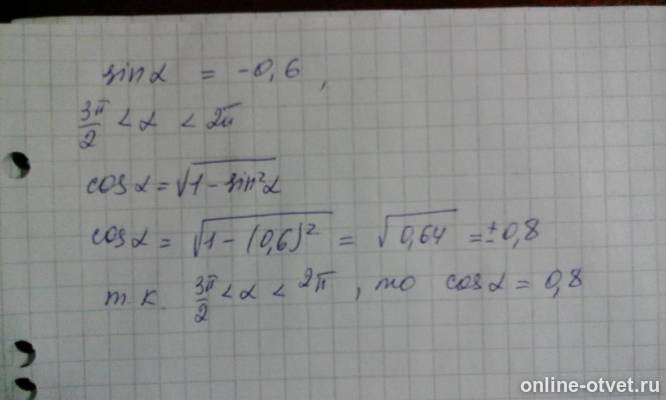 sin α = -0,6,
3π/2 < α < 2π
cos α = √(1 - sin²α)
cos α = √(1 - (0,6)²) = √0,64 = ±0,8
т.к. 3π/2 < α < 2π, то cos α = 0,8
online-otvet.ru